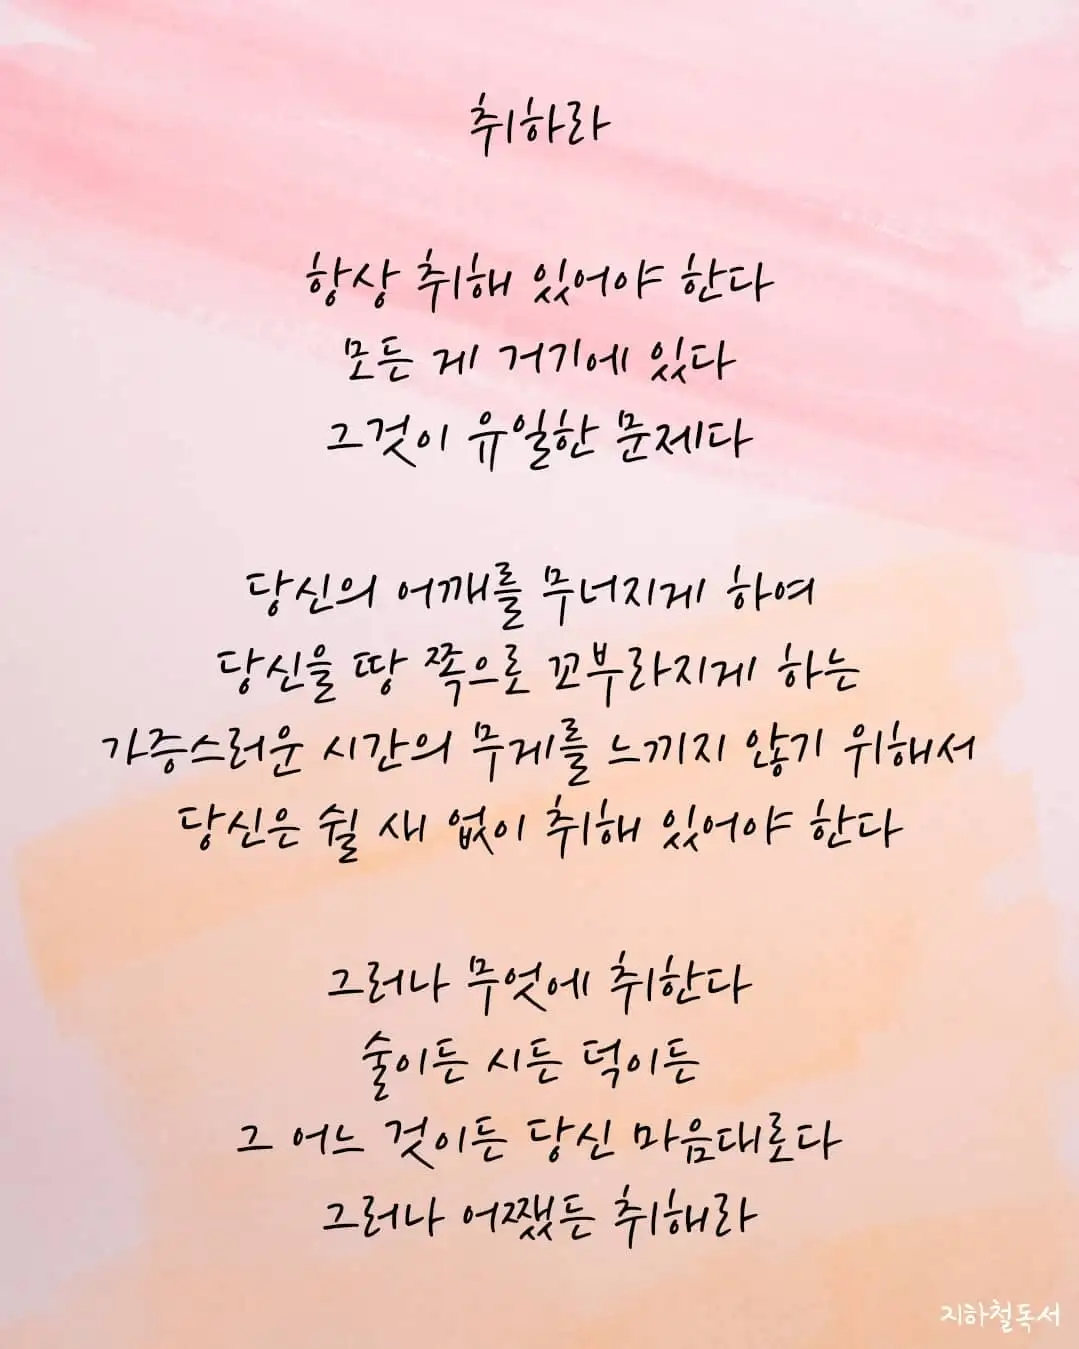 취하라
항상 취해 있어야 한다
모든 게 거기에 있다
그것이 유일한 문제다
당신의 어깨를 무너지게 하여
당신을 땅 쪽으로 꼬부라지게 하는
가증스러운 시간의 무게를 느끼지 않기 위해서
당신은 쉴 새 없이 취해 있어야 한다
그러나 무엇에 취한다
술이든 시든 덕이든
그 어느 것이든 당신 마음대로다
그러나 어쨌든 취해라
지하철독서